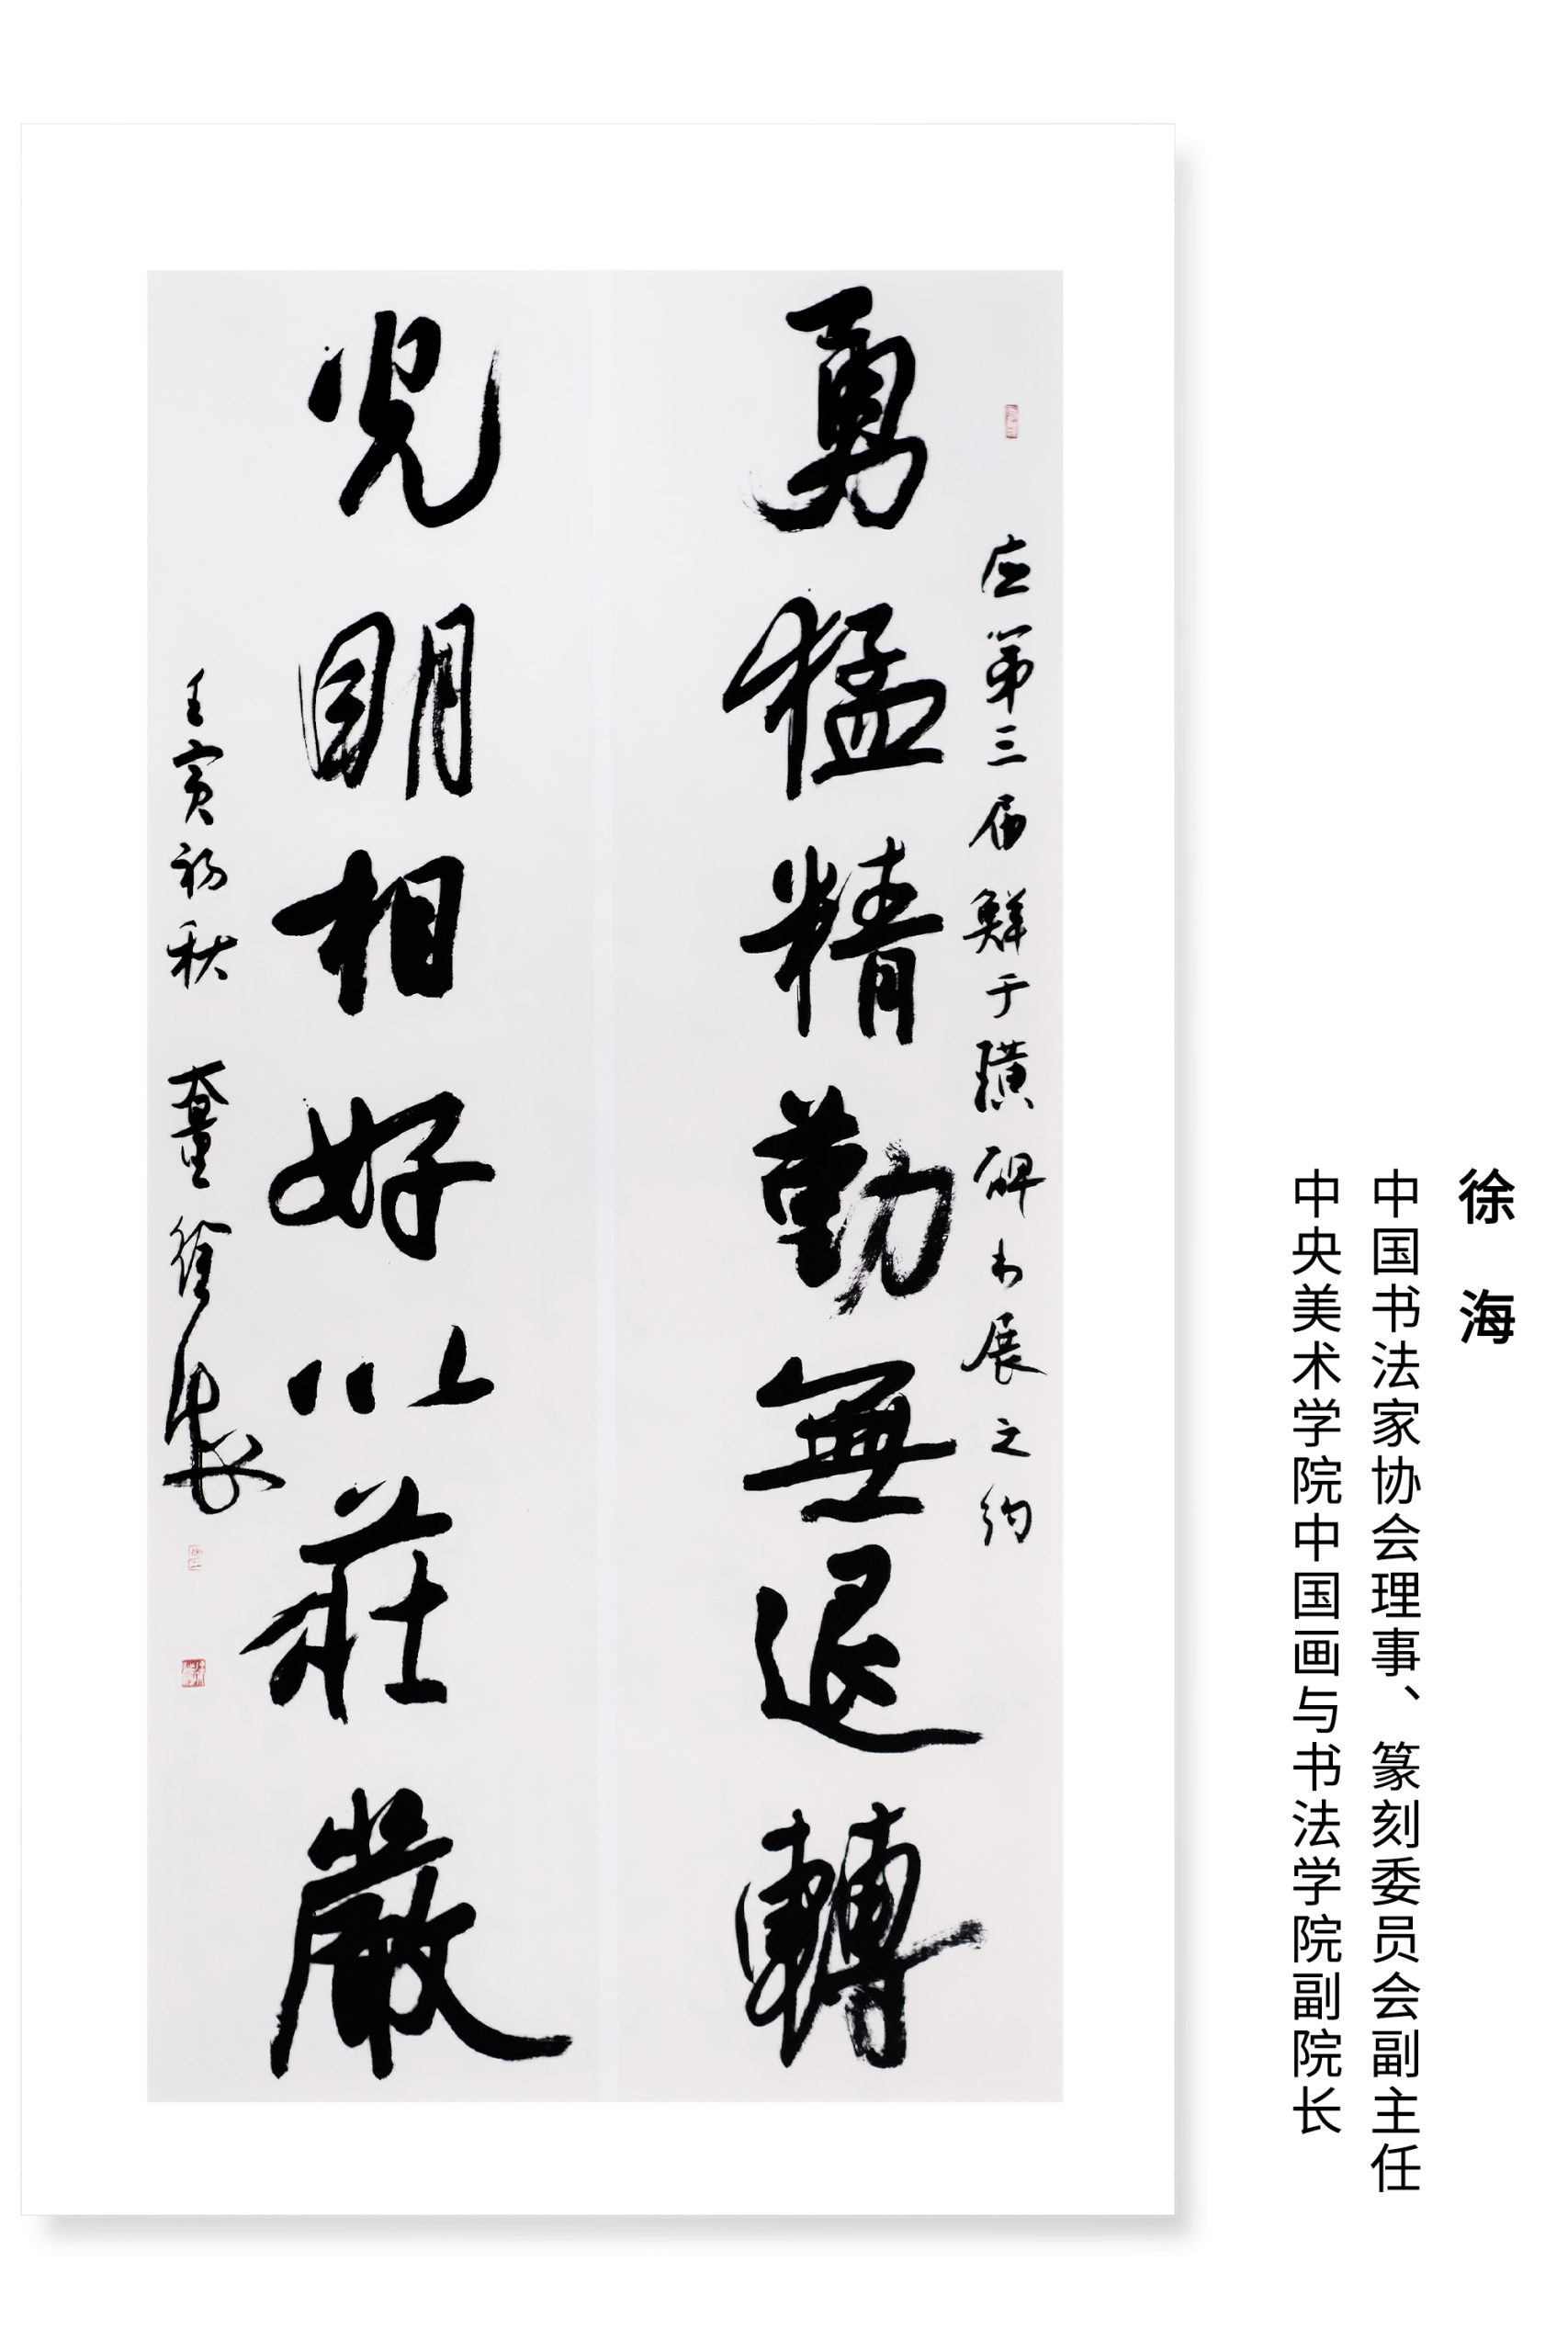 徐 海
中国书法家协会理事、篆刻委员会副主任
中央美术学院中国画与书法学院副院长
应第三届鮮于璜碑书展之约
勇猛精勤無退轉
光明相好以莊嚴
壬寅初秋 徐海